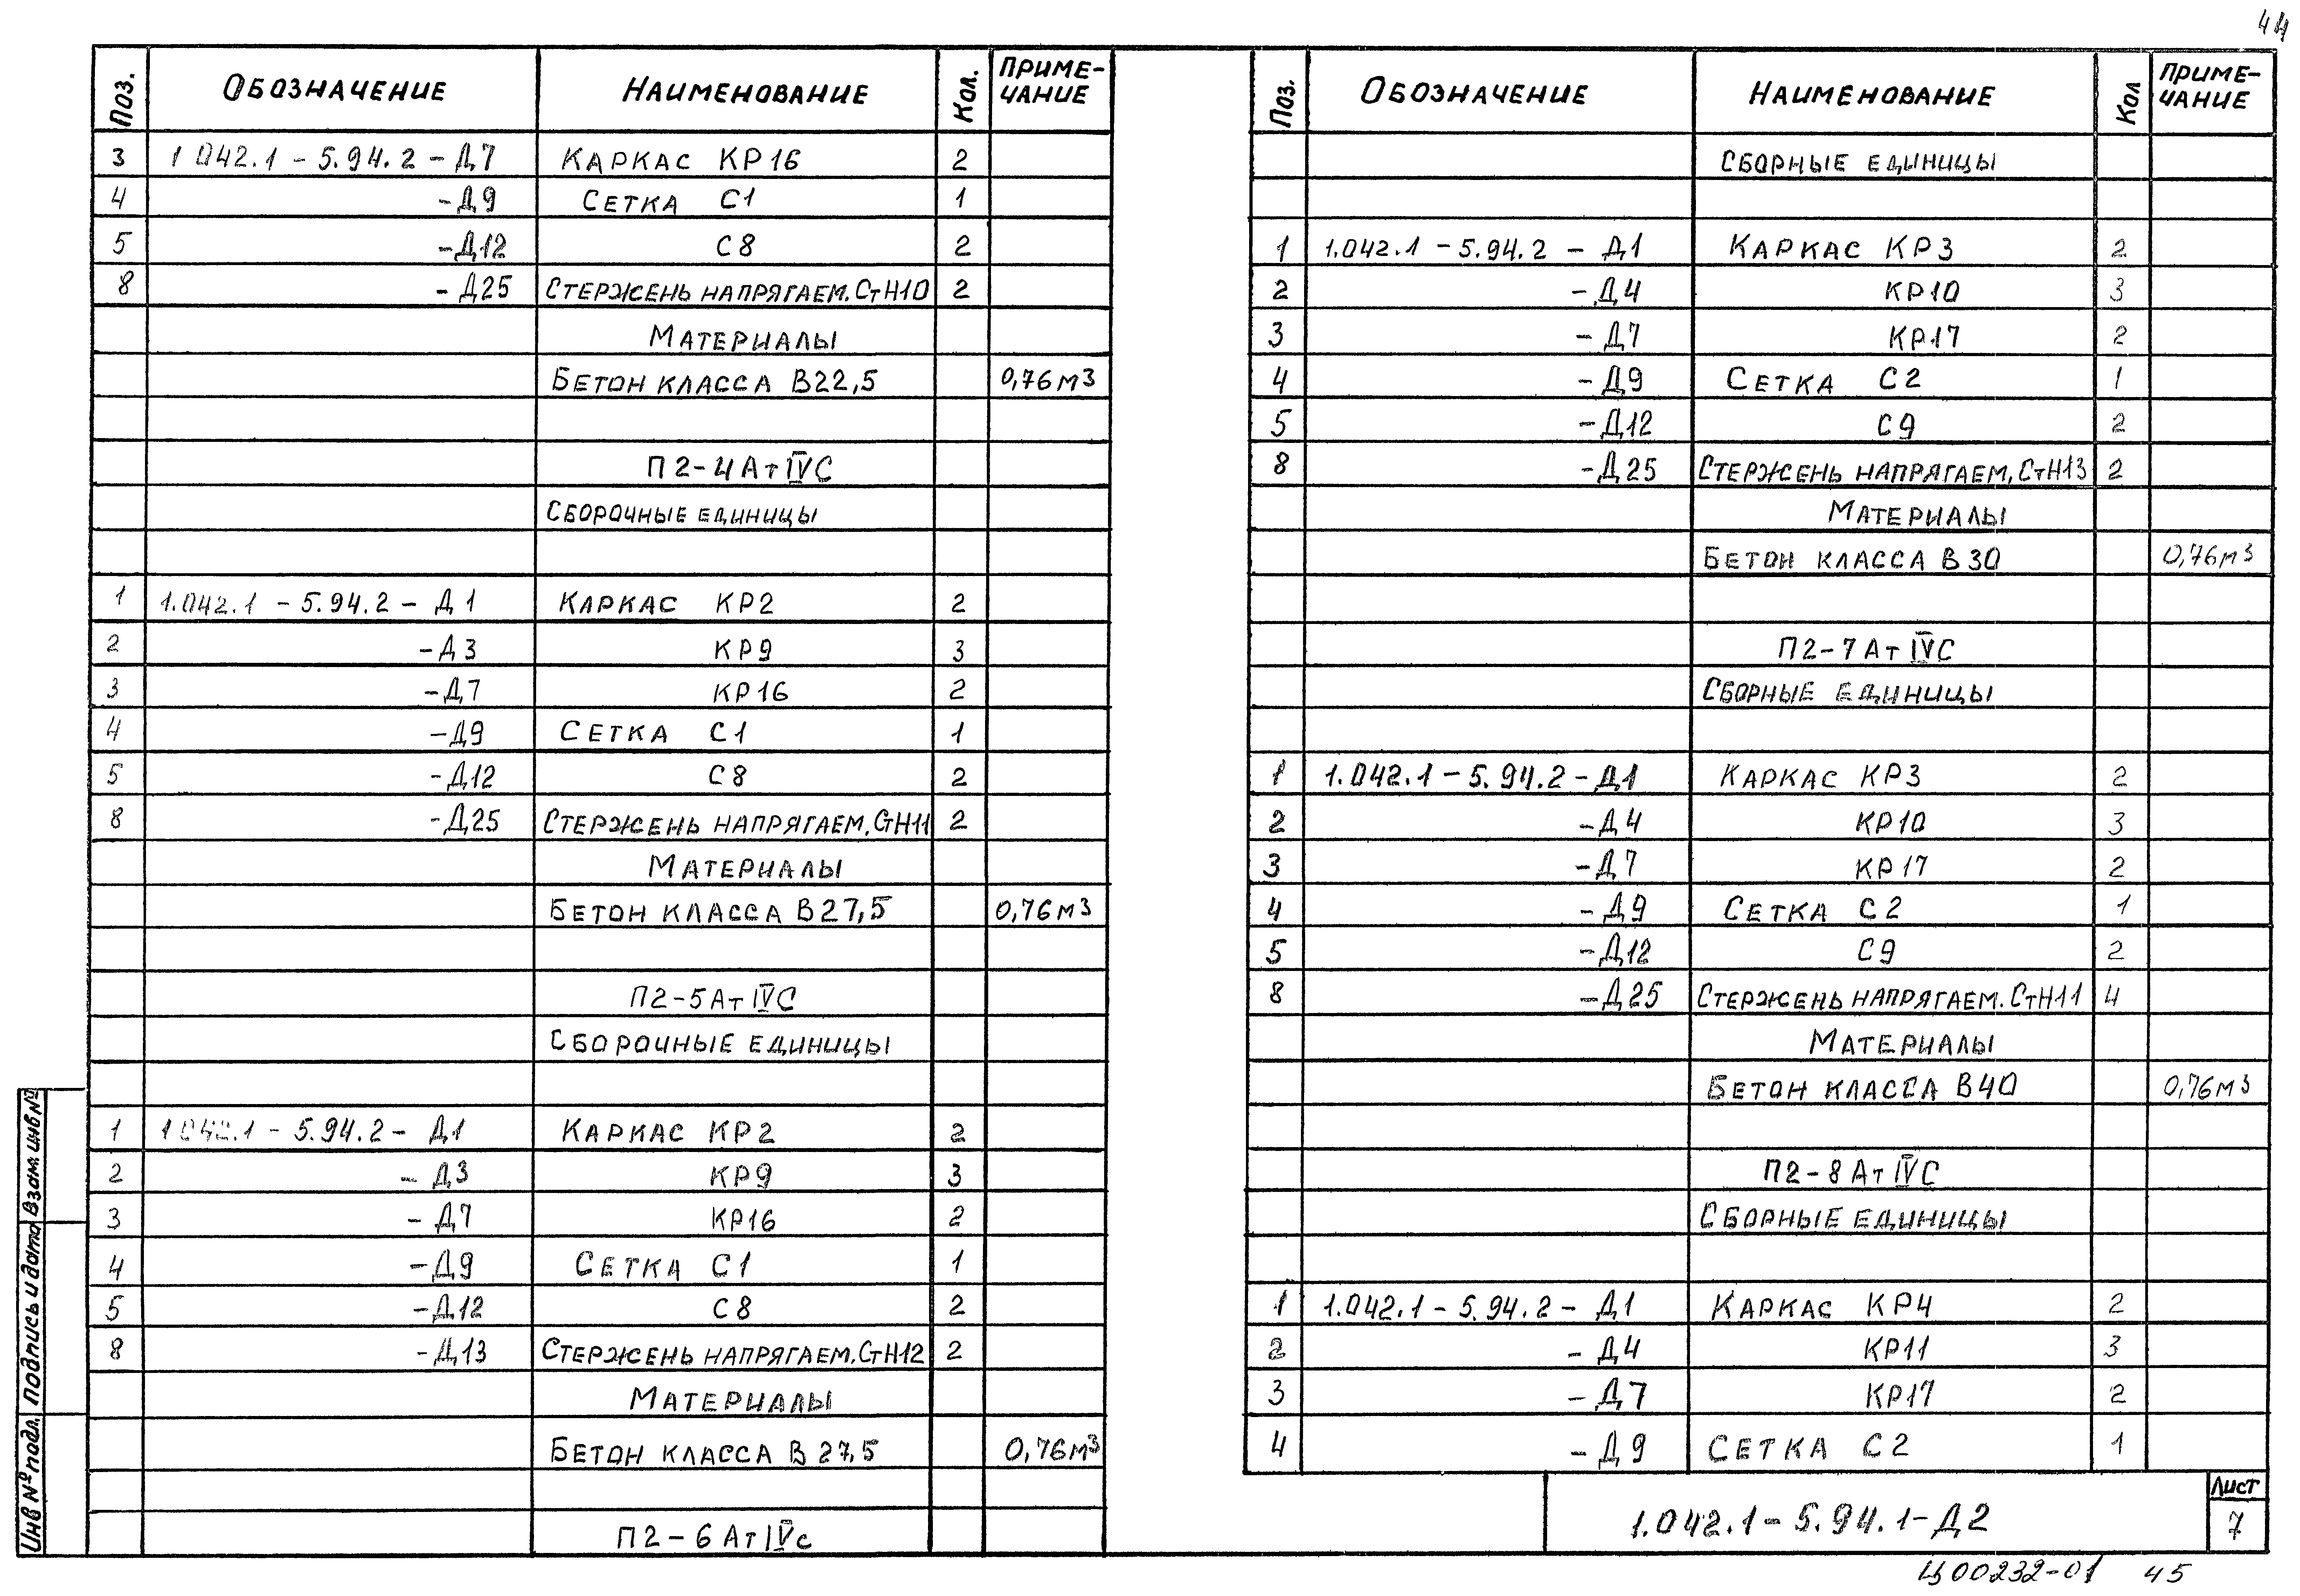 44
Поз. Обозначение Наименование Кол. Примечание
3 1.042.1-5.94.2-Д7 Каркас КР16 2
4 -Д9 Сетка С1 1
5 -Д12 С8 2
8 -Д25 Стержень напрягаем. СтН10 2
Материалы
Бетон класса В22,5 0,76м3
П2-4АтIVС
Сборочные единицы
1 1.042.1-5.94.2-Д1 Каркас КР2 2
2 -Д3 КР9 3
3 -Д7 КР16 2
4 -Д9 Сетка С1 1
5 -Д12 С8 2
8 -Д25 Стержень напрягаем. СтН11 2
Материалы
Бетон класса В27,5 0,76м3
П2-5АтIVС
Сборочные единицы
1 1.042.1-5.94.2-Д1 Каркас КР2 2
2 -Д3 КР9 3
3 -Д7 КР16 2
4 -Д9 Сетка С1 1
5 -Д12 С8 2
8 -Д13 Стержень напрягаем. СтН12 2
Материалы
Бетон класса В27,5 0,76м3
П2-6АтIVс
Поз. Обозначение Наименование Кол Примечание
Сборные единицы
1 1.042.1-5.94.2-Д1 Каркас КР3 2
2 -Д4 КР10 3
3 -Д7 КР17 2
4 -Д9 Сетка С2 1
5 -Д12 С9 2
8 -Д25 Стержень напрягаем. СтН13 2
Материалы
Бетон класса В30 0,76м3
П2-7АтIVС
Сборные единицы
1 1.042.1-5.94.2-Д1 Каркас КР3 2
2 -Д4 КР10 3
3 -Д7 КР17 2
4 -Д9 Сетка С2 1
5 -Д12 С9 2
8 -Д25 Стержень напрягаем. СтН11 4
Материалы
Бетон класса В40 0,76м3
П2-8АтIVС
Сборные единицы
1 1.042.1-5.94.2-Д1 Каркас КР4 2
2 -Д4 КР11 3
3 -Д7 КР17 2
4 -Д9 Сетка С2 1
1.042.1-5.94.1-Д2
Лист
7
Инв № подл. Подпись и дата Взам. инв №
Ц00232-01 45